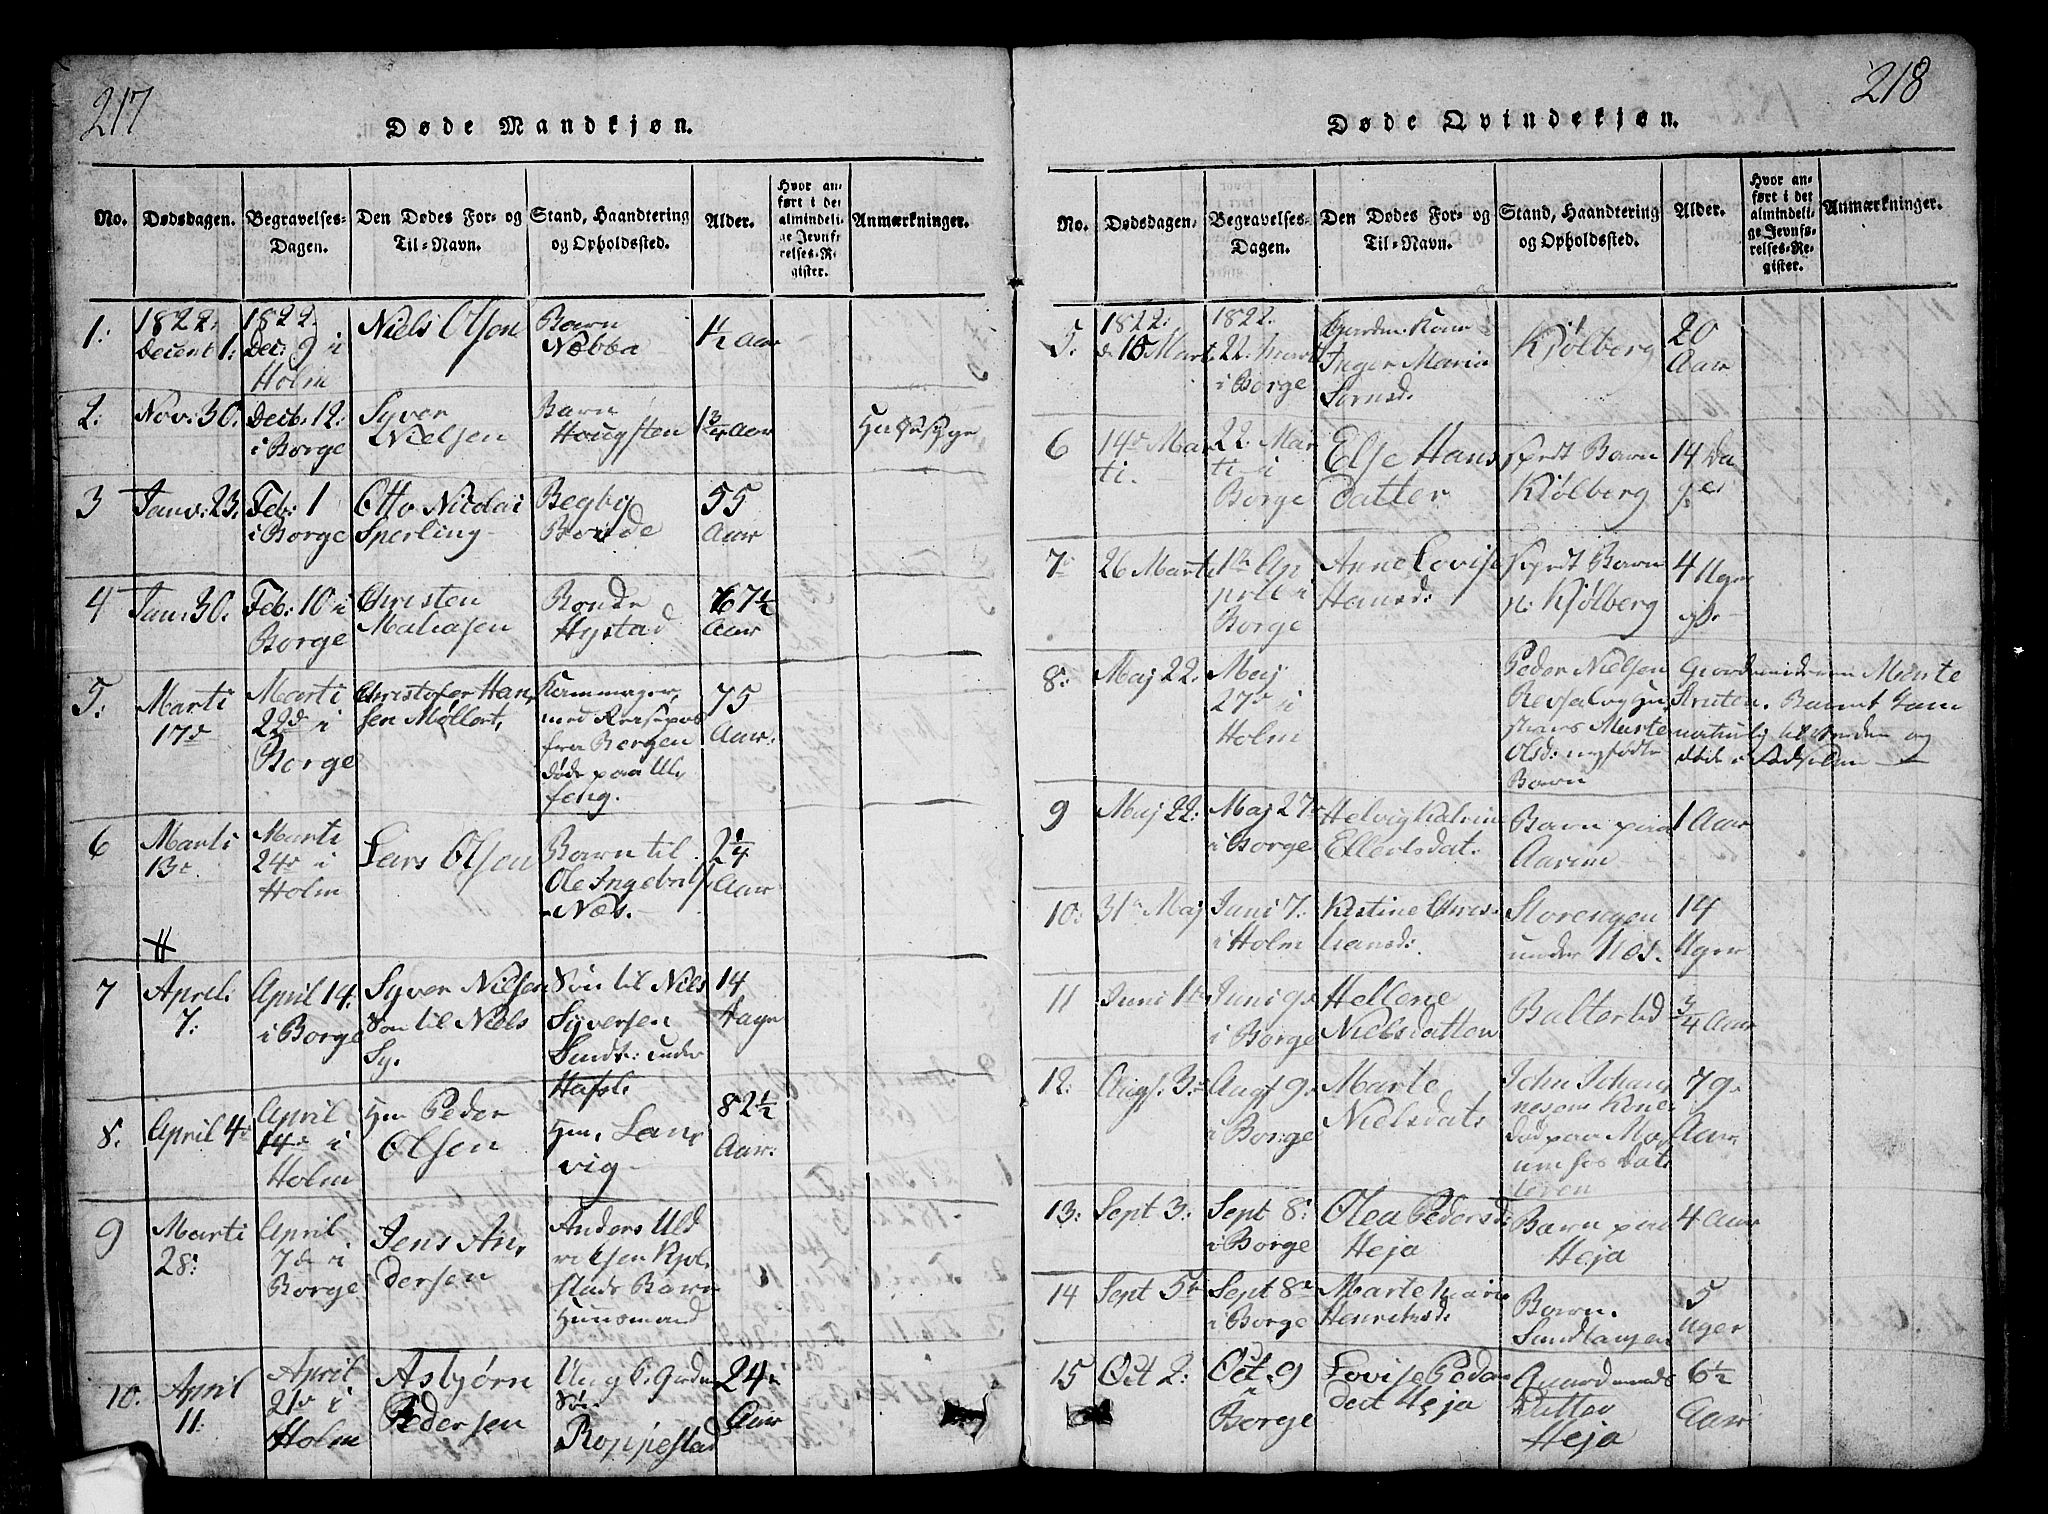 217
Døde Mandkjøn.
No. Dødsdagen. Begravelses-Dagen. Den Dødes For- og Til-Navn. Stand, Haandtering og Opholdssted. Alder. Hvor anført i det almindelige Jevnførelses-Register. Anmærkninger.
1: 1822. Decemb 1: 1822. Dec: 9 i Holm Niels Olsen Barn Næbba 1½ Aar
2: Nov: 30. Decb. 12: i Borge Syver Nielsen Barn Hougsten 1¾ Aar
3 Janv: 23. Feb: 1 i Borge Otto Nicolai Sperling Begby Bonde 55 Aar
4 Jan: 30. Feb: 10 i Borge Christen Bonde Hystad 67½ Aar
5: Marti 17de Marti 22de i Borge Christofer Hansen Møllert, med fra Bergen døde paa 75 Aar.
6 Marti 13e Marti 24de i Holm Lars Olsen Barn til Ole Ingebrits Næs. 2¼ Aar
7 April 7: April 14: i Borge Syver Nielsen Søn til Niels Sy. Søn til Niels Syversen under Hafsl. 14 Dage
8: April 4de April 14de i Holm Peder Olsen 82½ Aar.
9 Marti 28: April 7de i Borge Jens Andersen Anders Barn Huusmand
10. April 11: April 21de i Holm Asbjørn Pedersen Ung K. Søn Roppestad 24 Aar
218
Døde Qvindekjøn.
No. Dødsdagen. Begravelses-Dagen. Den Dødes For- og Til-Navn. Stand, Haandtering og Opholdssted. Alder. Hvor anført i det almindelige Jevnførelses-Register. Anmærkninger.
5. 1822: d 15 Mart 1822. 22. Mart i Borge Kone Inger Maria Kjølberg 20 Aar
6 14de Marti. 22. Marti i Borge Else Hansdatter Barn Kjølberg 14 Dage
7 26 Marti 1te April i Borge Anne Lovise Hansd: Barn p: Kjølberg 4 Uger
8: Maj 22. Maj 27de i Holm Peder Nielsen Marte Olsd: nyfødte Barn Gjordemoderen Marte Barnet kom naturlig til Verden og døde i Fødselen
9 Maj 22: Maj 27de i Borge Helvig Katrine Ellertsdat. Barn paa 1 Aar
10: 31te Maj Juni 7: i Holm Kistine Christiansd: Storengen under Næs. 14 Uger
11 Juni 1te Juni 9de i Borge Hellene Nielsdatter ¾ Aar
12: Augs: 3de Augs 9de i Borge Marte Nielsdat: John Johannesens Kone død paa 79 Aar
13: Sept 3: Sept 8: i Borge Olea Pedersd: Heja Barn paa Heja 4 Aar
14 Sept 5te Sept 8de i Borge Marte Marie Henriksd: Barn. 5 Uger
15 Oct 2: Oct. 9 i Borge Lovise Pedersdat Heja Gaardmands Datter Heja 6½ Aar